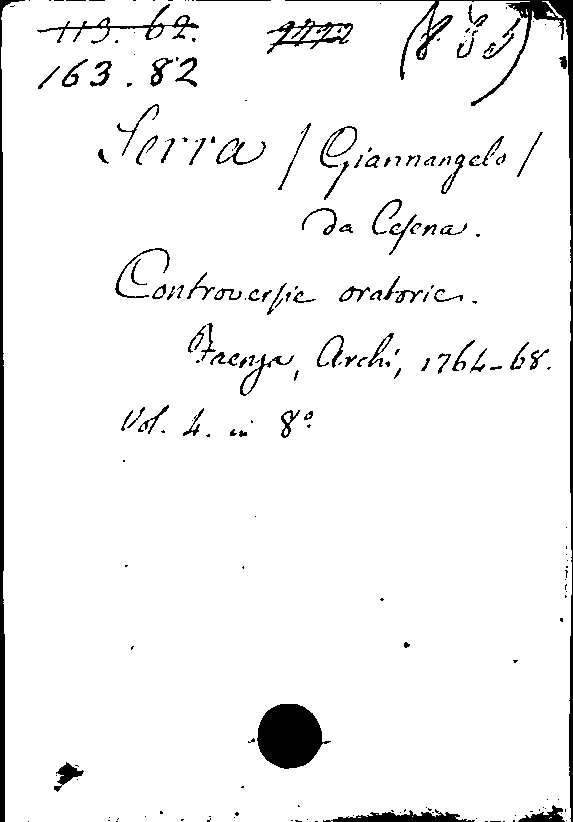 113. 62.
163.82
Serra / Giannangelo /
Da Cesena.
Controversie oratorie.
Faenza, Archi, 1764-68.
Vol. 4. in 8º